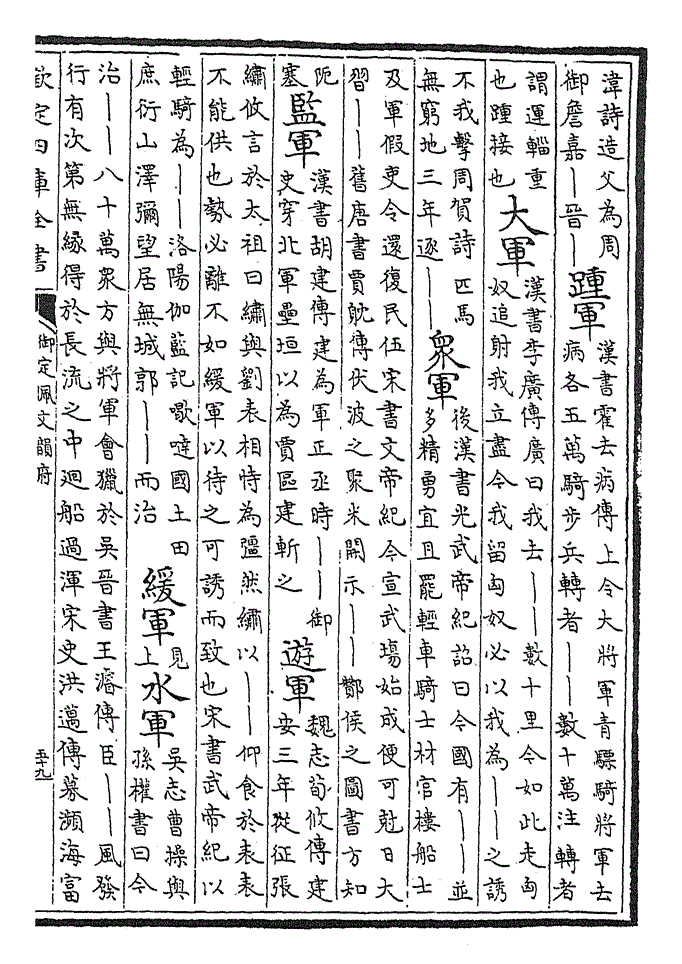 湋詩造父為周
御詹嘉丨晉丨
踵軍
漢書霍去病傳上令大將軍青驃騎將軍去
病各五萬騎步兵轉者丨丨數十萬注轉者
謂運輜重
也踵接也
大軍
漢書李廣傳廣曰我去丨丨數十里令如此走匈
奴追射我立盡今我留匈奴必以我為丨丨之誘
不我擊周賀詩匹馬
無窮地三年逐丨丨
衆軍
後漢書光武帝紀詔曰今國有丨丨並
多精勇宜且罷輕車騎士材官樓船士
及軍假吏令還復民伍宋書文帝紀今宣武塲始成便可尅日大
習丨丨舊唐書賈躭傳伏波之聚米開示丨丨酇侯之圖書方知
阨
塞
監軍
漢書胡建傳建為軍正丞時丨丨御
史穿北軍壘垣以為賈區建斬之
遊軍
魏志荀攸傳建
安三年從征張
繡攸言於太祖曰繡與劉表相恃為彊然繡以丨丨仰食於表表
不能供也勢必離不如緩軍以待之可誘而致也宋書武帝紀以
輕騎為丨丨洛陽伽藍記歇噠國土田
庶衍山澤彌望居無城郭丨丨而治
緩軍
見
上
水軍
吳志曹操與
孫權書曰今
治丨丨八十萬衆方與將軍會獵於吳晉書王濬傳臣丨丨風發
行有次第無緣得於長流之中廻船過渾宋史洪邁傳募瀕海富
欽定四庫全書
御定佩文韻府
五十九